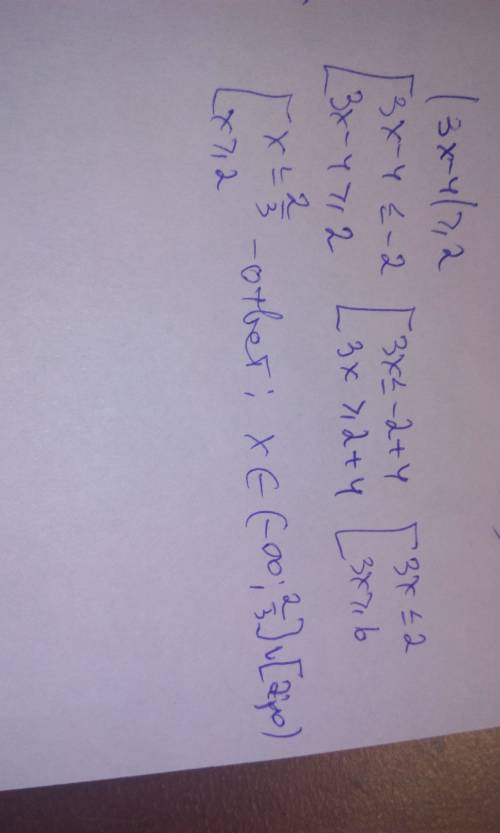 |3x-4|⩾2
[3x-4≤-2 [3x≤-2+4 [3x≤2
[3x-4⩾2 [3x⩾2+4 [3x⩾6
[x≤2/3
[x⩾2 -ответ: x∈(-∞;2/3]∪[2;∞)